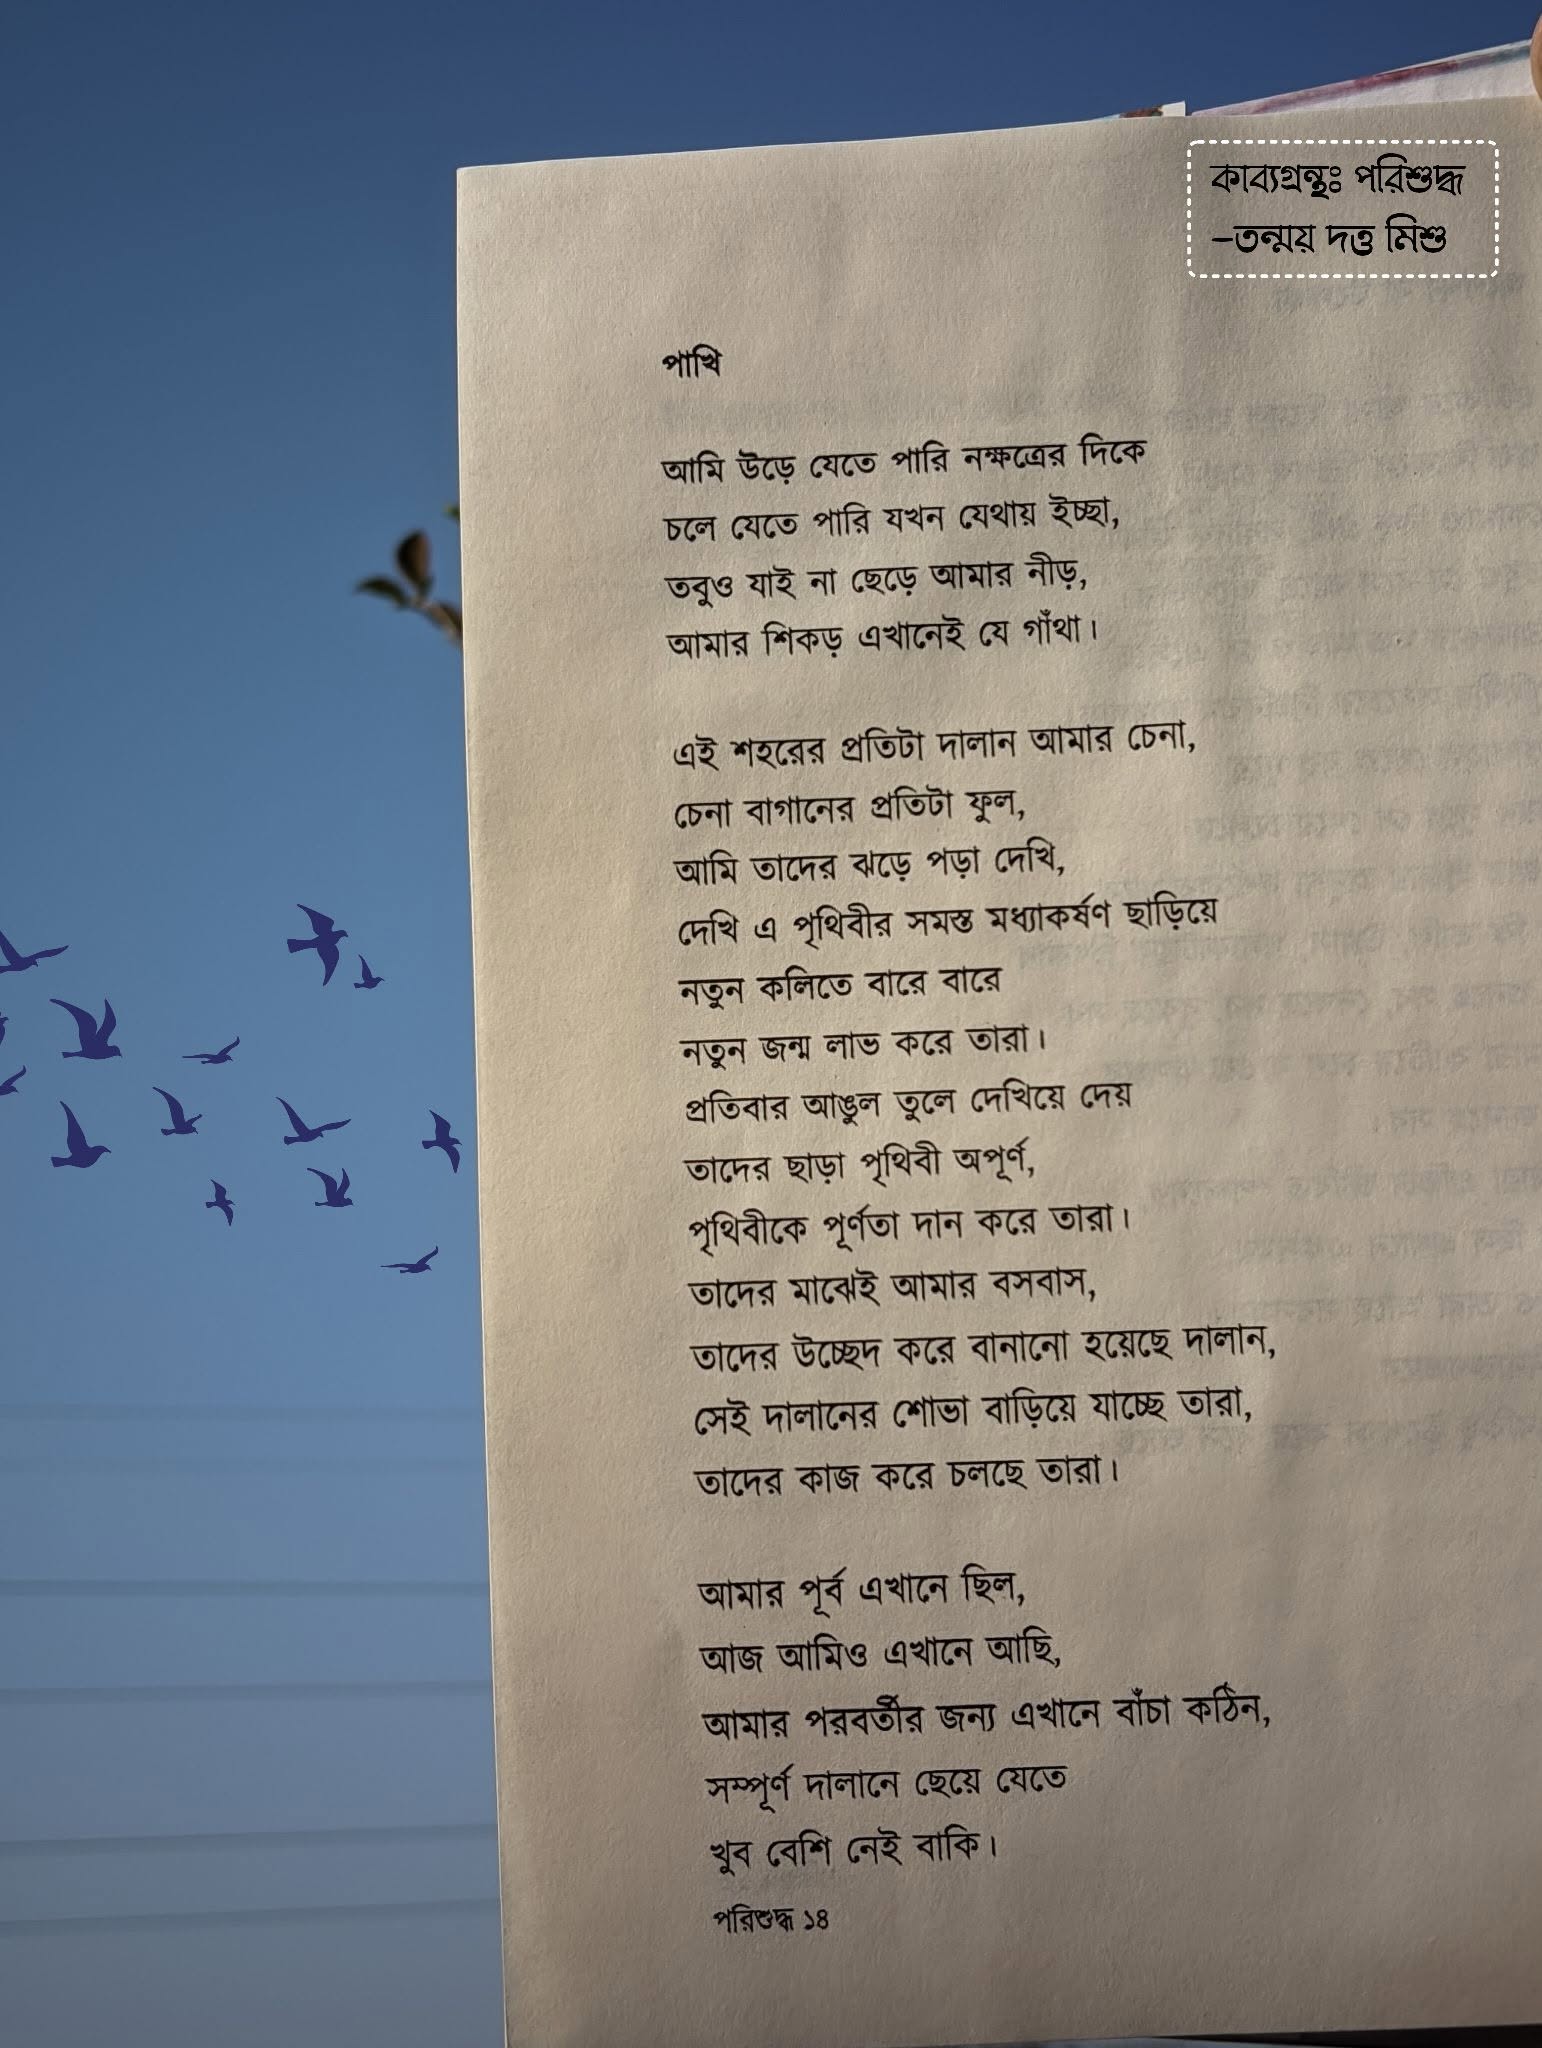 কাব্যগ্রন্থঃ পরিশুদ্ধ
-তন্ময় দত্ত মিশু
পাখি
আমি উড়ে যেতে পারি নক্ষত্রের দিকে
চলে যেতে পারি যখন যেথায় ইচ্ছা,
তবুও যাই না ছেড়ে আমার নীড়,
আমার শিকড় এখানেই যে গাঁথা।
এই শহরের প্রতিটা দালান আমার চেনা,
চেনা বাগানের প্রতিটা ফুল,
আমি তাদের ঝড়ে পড়া দেখি,
দেখি এ পৃথিবীর সমস্ত মধ্যাকর্ষণ ছাড়িয়ে
নতুন কলিতে বারে বারে
নতুন জন্ম লাভ করে তারা।
প্রতিবার আঙুল তুলে দেখিয়ে দেয়
তাদের ছাড়া পৃথিবী অপূর্ণ,
পৃথিবীকে পূর্ণতা দান করে তারা।
তাদের মাঝেই আমার বসবাস,
তাদের উচ্ছেদ করে বানানো হয়েছে দালান,
সেই দালানের শোভা বাড়িয়ে যাচ্ছে তারা,
তাদের কাজ করে চলছে তারা।
আমার পূর্ব এখানে ছিল,
আজ আমিও এখানে আছি,
আমার পরবর্তীর জন্য এখানে বাঁচা কঠিন,
সম্পূর্ণ দালানে ছেয়ে যেতে
খুব বেশি নেই বাকি।
পরিশুদ্ধ ১৪